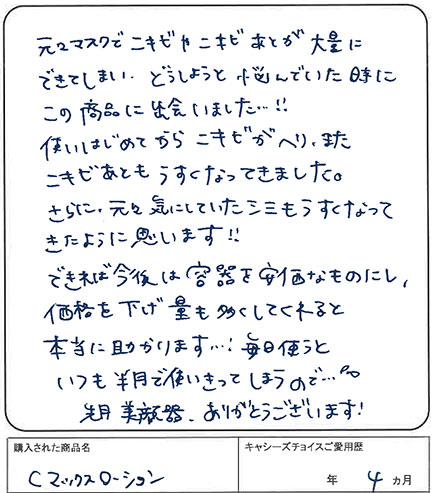 元々マスクでニキビやニキビあとが大量に
できてしまい、どうしようと悩んでいた時に
この商品に出会いました…!!
使いはじめてからニキビがへり、また
ニキビあともうすくなってきました。
さらに、元々気にしていたシミもうすくなって
きたように思います!!
できれば今後は容器を安価なものにし、
価格を下げ量も多くしてくれると
本当に助かります…!毎日使うと
いつも半月で使いきってしまうので…
美顔器、ありがとうございます!
購入された商品名
キャシーズチョイスご愛用歴
Cマックスローション
年 4 カ月